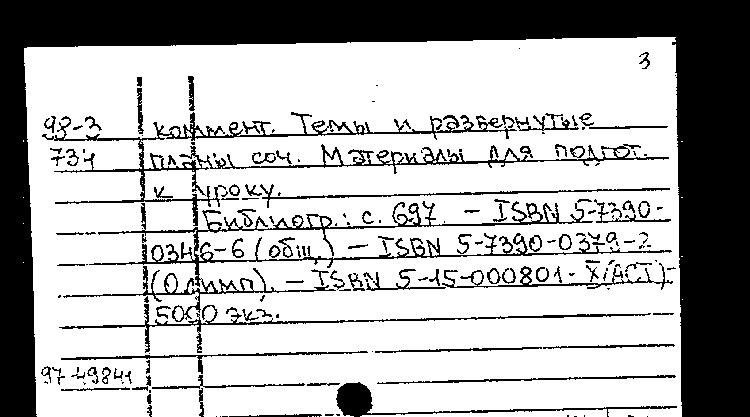 3
98-3 коммент. Темы и развернутые
734 планы соч. Материалы для подгот.
к уроку.
Библиогр.: с. 697. – ISBN 5-7390-
0346-6 (общ.) – ISBN 5-7390-0379-2
(Олимп). – ISBN 5-15-000801-X (АСТ)-
5000 экз.
97-49841